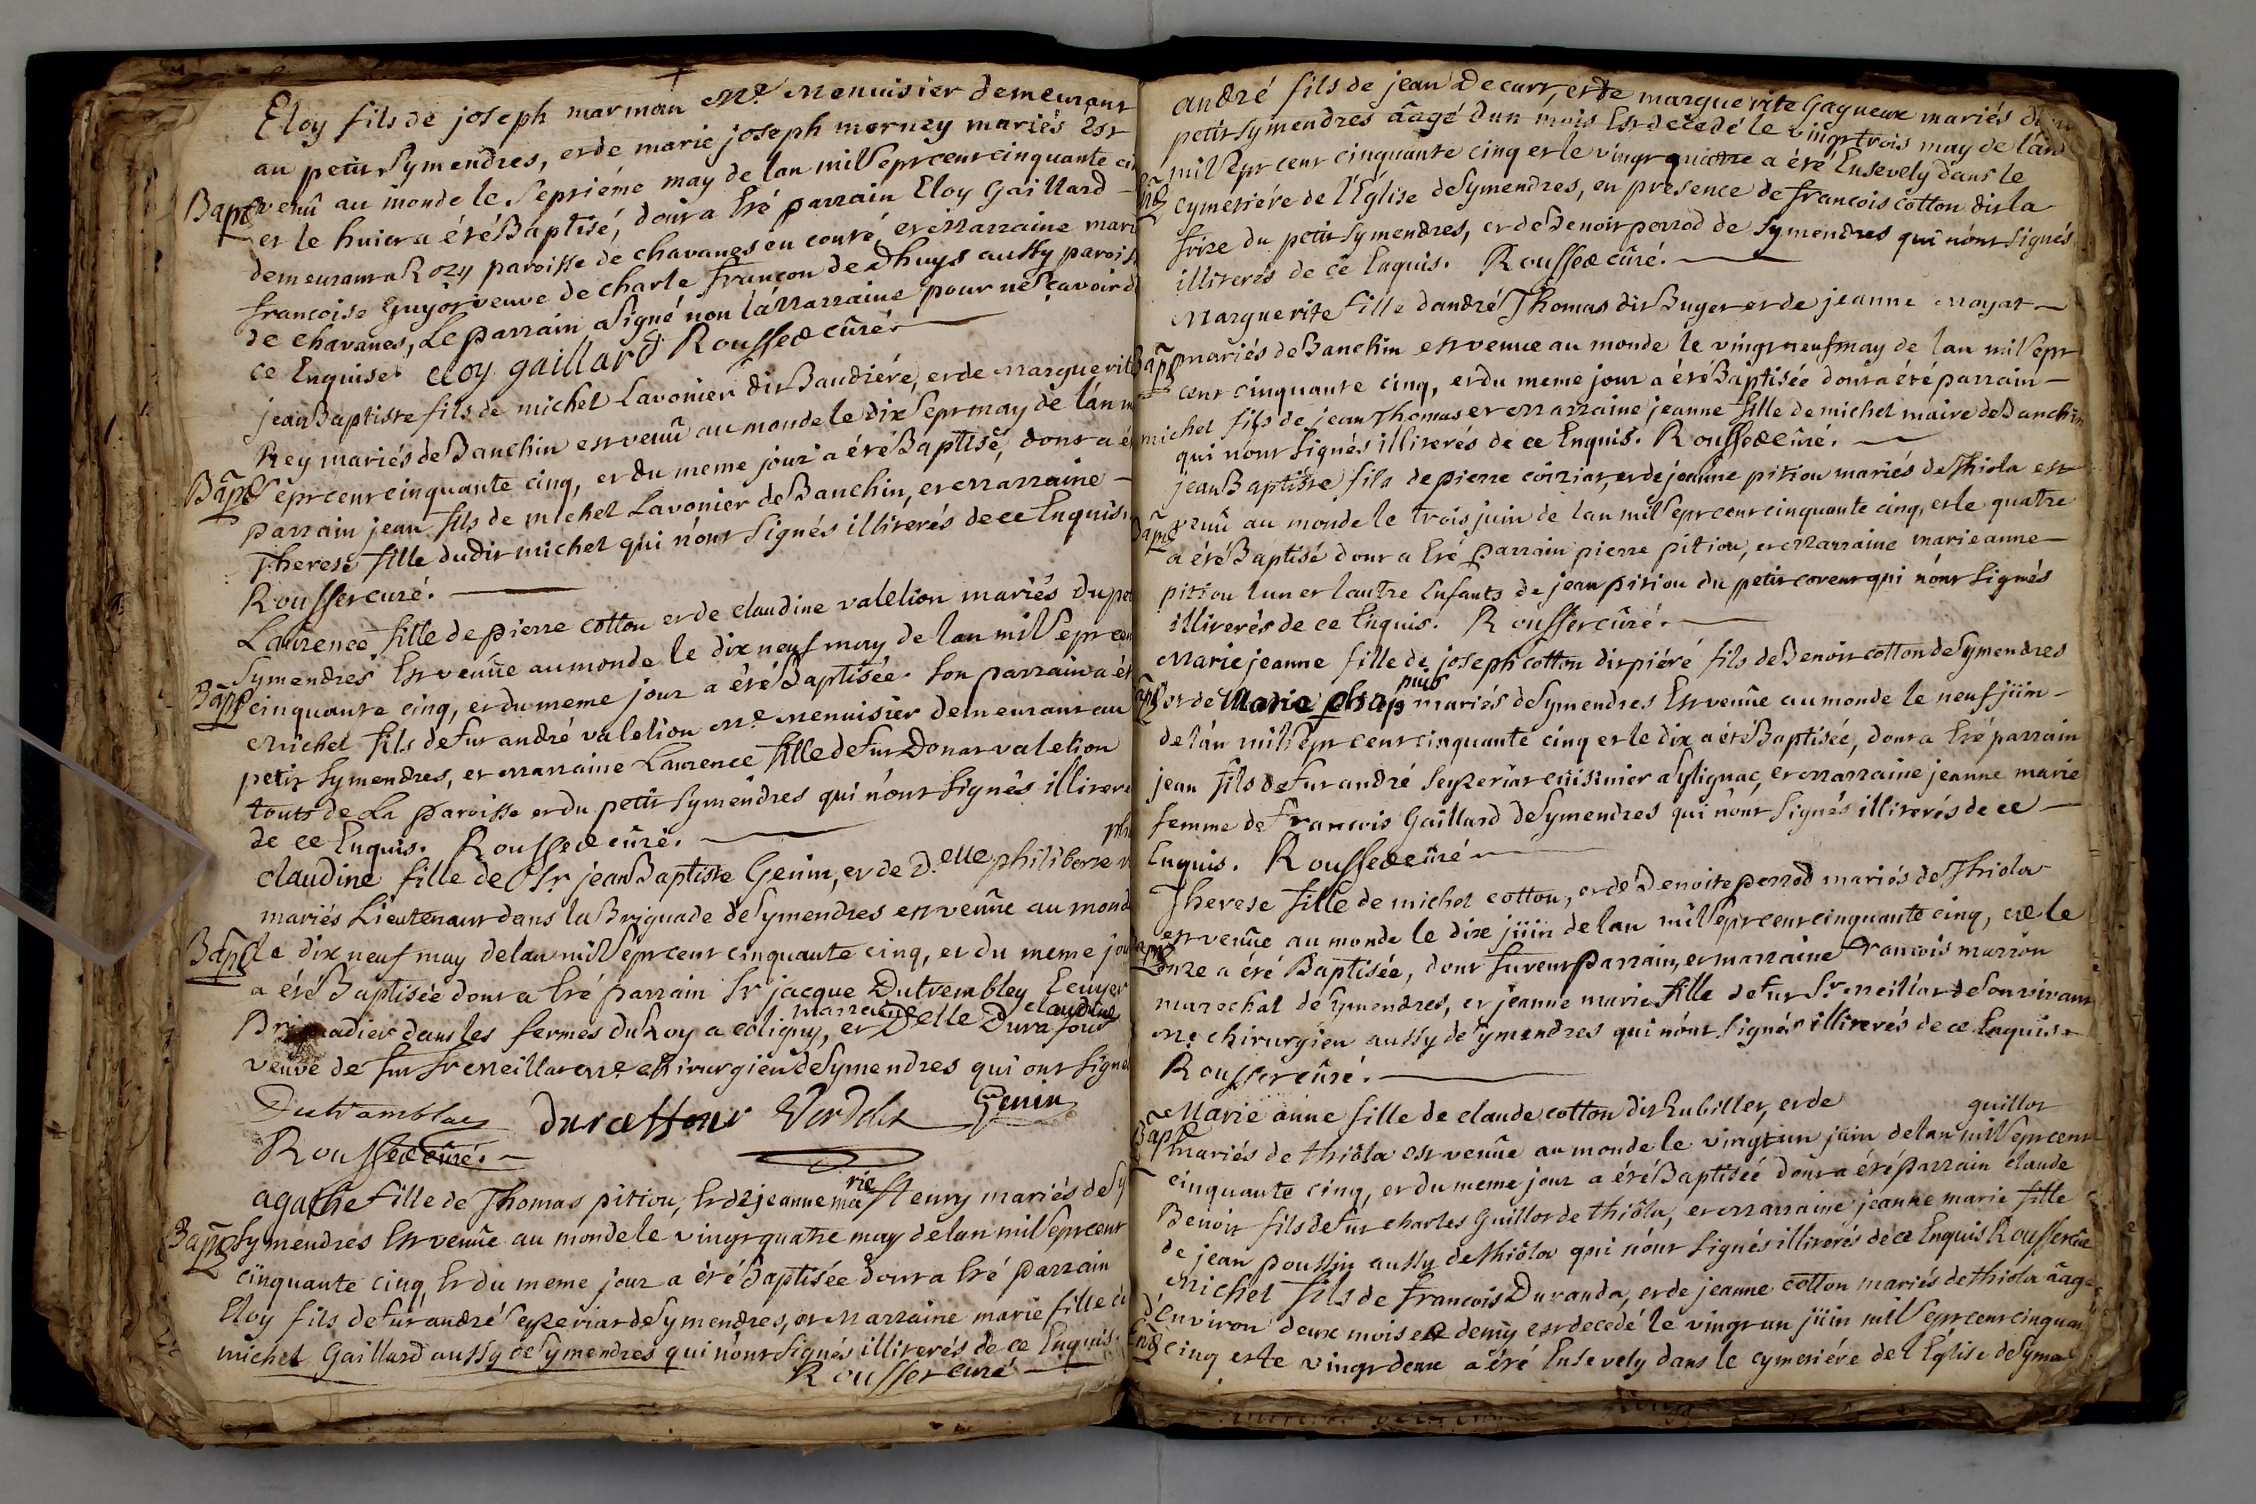 Eloy fils de joseph marmon me menuisier demeurant
au petit Symendres, et de marie joseph morney mariés est
Bapt venû au monde le septiéme may de lan mil sept cent cinquante
et le huict a été Baptisé, dont a été parrain Eloy Gaillard
demeurant a Rozy paroisse de chavanes en conté, et marraine
francoise Guyot veuve de charle françon de Dhuys aussy
de chavanes, Le parrain a signé non la marraine pour ne sçavoir
ce Enquise. eloy gaillard Rousset curé
jean Baptiste fils de michel Lavonier dit Baudiére, et de marguerite
Rey mariés de Banchin est venû au monde le dix sept may de lán
Bapt sept cent cinquante cinq, et du meme jour a été Baptisé, dont a
parrain jean fils de michel Lavonier de Banchin, et marraine
Therese fille dudit michel qui nónt signés illiterés de ce Enquis.
Rousset curé.
Laurence fille de pierre cotton et de claudine valelion mariés du
Symendres Est venûe au monde le dix neuf may de lan mil sept
Bapt cinquante cinq, et du meme jour a été Baptisée. son parrain a
michel fils de fut andré valelion me menuisier demeurant au
petit symendres, et marraine Laurence fille de fut Donat valelion
touts de la paroisse et du petit symendres qui nónt signés
de ce Enquis. Rousset curé.
claudine fille de Sr jean Baptiste Genin, et de D.elle philiberte
mariés Lieutenant dans la Briguade de Symendres est venûe au
Bapt le dix neuf may de lan mil sept cent cinquante cinq, et du meme
a été Baptisée dont a été parrain Sr jacque Dutrembley Ecuyer
Brigadier dans les fermes du Roy a coligny, et marraine Delle claudine Durafour
veuve de fut Sr meillar me chirurgien de Symendres qui ont signé
Dutramblay Genin
Rousset curé.
agathe fille de Thomas pition, Et de jeanne marie fleury mariés de
Bapt Symendres Est venûe au monde le vingt quatre may de lan mil sept cent
cinquante cinq, Et du meme jour a été Baptisée dont a été parrain
Eloy fils de fut andré Seyzeriat de Symendres, et marraine marie fille
michel Gaillard aussy de Symendres qui nónt signés illiterés de ce Enquis.
Rousset curé
andré fils de jean Decurt, et de marguerite Gagneux mariés
petit symendres âagé dun mois Est decedé le vingt trois may de lán
mil sept cent cinquante cinq et le vingt quatre a été Ensevely dans le
cymetiére de l'Église de Symendres, en presence de francois cotton dit la
frize du petit symendres, et de Benoit perrod de Symendres qui nónt signés
illiterés de ce Enquis. Rousset curé.
Marguerite fille dandré Thomas dit Buget et de jeanne moyat
Bapt mariés de Banchin est venue au monde le vingt neuf may de lan mil sept
cent cinquante cinq, et du meme jour a été Baptisée dont a été parrain
michel fils de jean Thomas et marraine jeanne fille de michel maire de Banchin
qui nónt signés illiterés de ce Enquis. Rousset curé.
jean Baptiste fils de pierre coiziat, et de jeanne pition mariés de Thiola est
Bapt venû au monde le trois juin de lan mil sept cent cinquante cinq, et le quatre
a été Baptisé dont a été parrain pierre pition, et marraine marie anne
pition lun et lautre Enfants de jean pition du petit corent qui nónt signés
illiterés de ce Enquis. Rousset curé.
Marie jeanne fille de joseph cotton dit piéré fils de Benoit cotton de Symendres
Bapt et de Marie mariés de Symendres Est venûe au monde le neuf jüin
de lán mil sept cent cinquante cinq et le dix a été Baptisée, dont a été parrain
jean fils de fut andré Seyzeriat cuisinier a Sylignac, et marraine jeanne marie
femme de francois Gaillard de Symendres qui nónt signés illiterés de ce
Enquis. Rousset curé
Therese fille de michel cotton, et de Benoite perrod mariés de Thiola
est venûe au monde le dix jüin de lan mil sept cent cinquante cinq, et le
Bapt onze a été Baptisée, dont furent parrain, et marraine francois marion
marechal de Symendres, et jeanne marie fille de fut Sr meillar de son vivant
me chirurgien aussy de Symendres qui nónt signés illiterés de ce Enquis.
Rousset curé.
Marie anne fille de claude cotton dit Lubillet, et de guillot
Bapt mariés de thiôla est venûe au monde le vingt un juin de lan mil sept cent
cinquante cinq, et du meme jour a été Baptisée dont a été parrain claude
Benoit fils de fut charles Guillot de thiôla, et marraine jeanne marie fille
de jean poussin aussy de thiôla qui nónt signés illiterés de ce Enquis Rousset curé
Michel fils de francois Duranda, et de jeanne cotton mariés de thiola âagé
dénviron deux mois et demÿ est decedé le vingt un jüin mil sept cent cinquante
cinq et le vingt deux a été Ensevely dans le cymetiére de l Église de